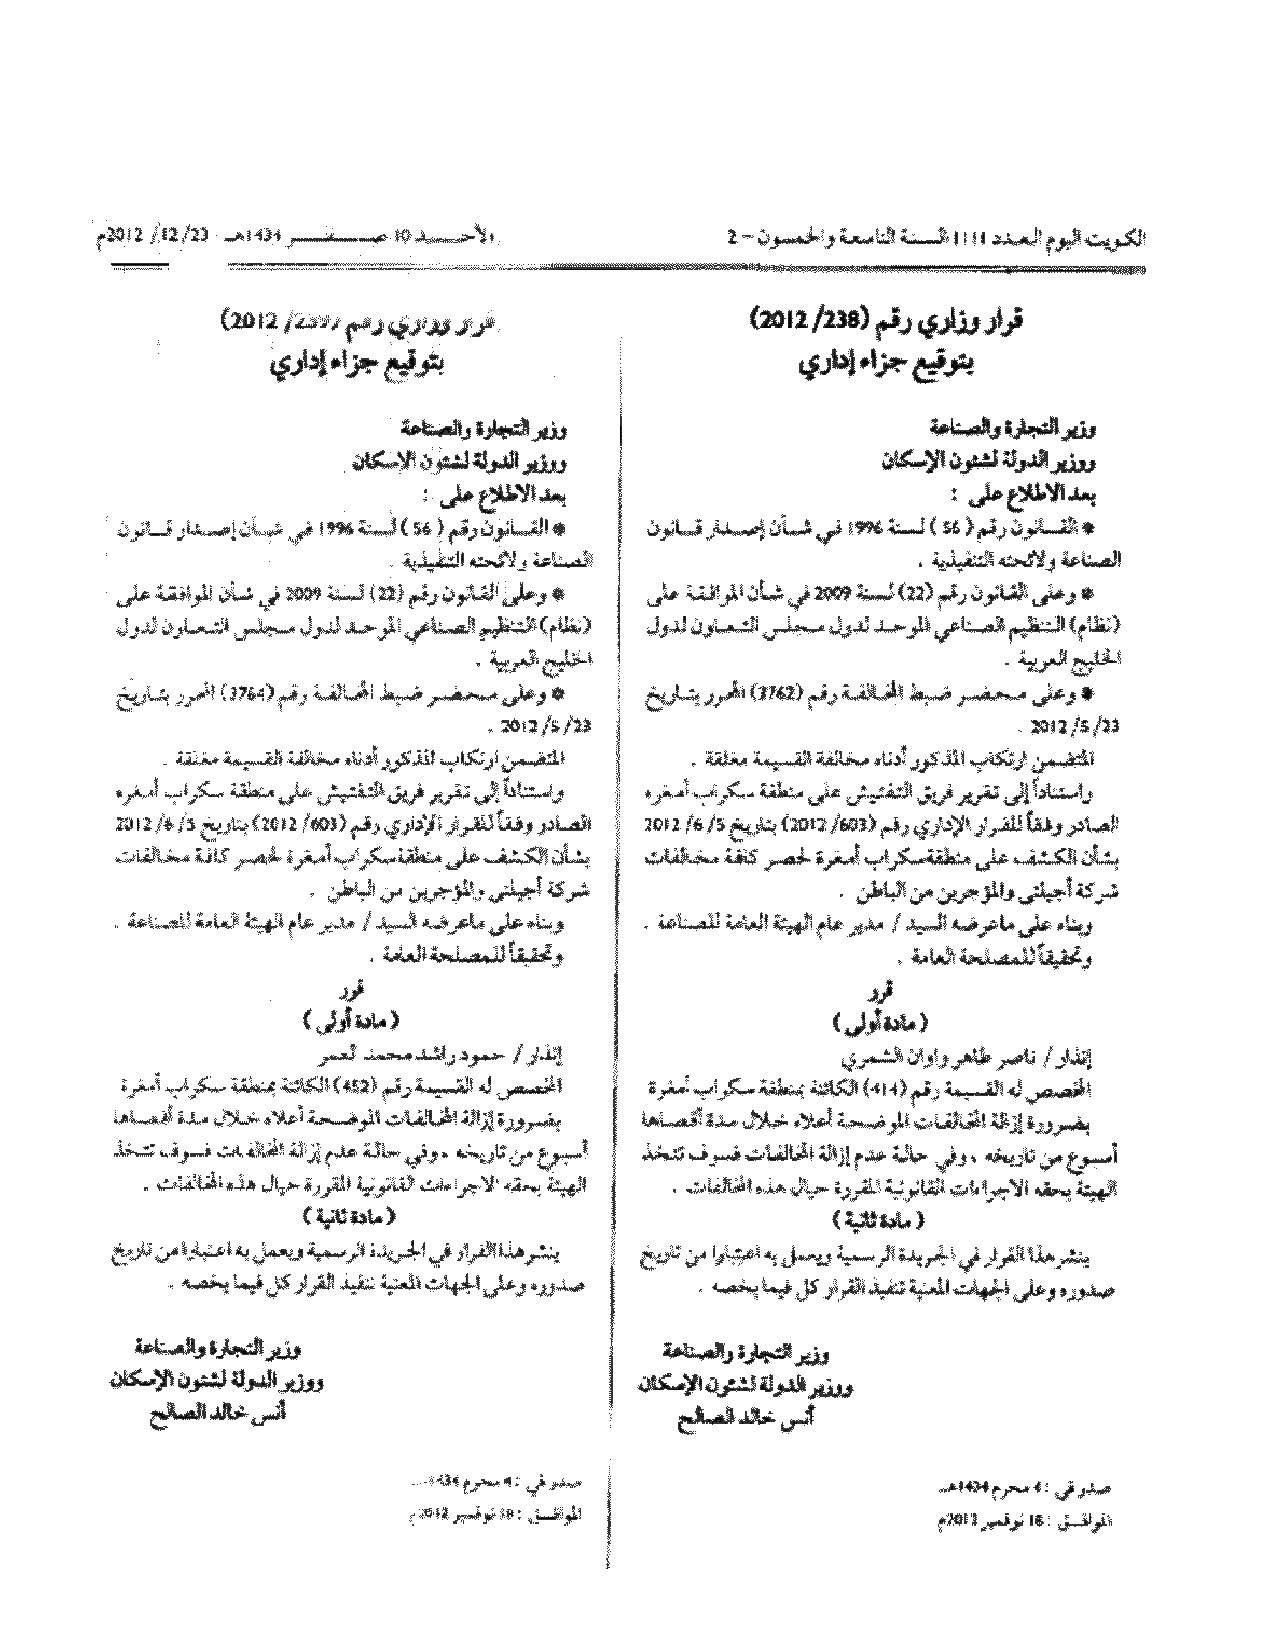 الكويت اليوم العدد 1111 السنة التاسعة والخمسون - 2
الأحـــد 10 صـــفـــر 1434هـ 23/ 12/ 2012م
قرار وزاري رقم (238/ 2012)
بتوقيع جزاء إداري
وزير التجارة والصناعة
ووزير الدولة لشئون الإسكان
بعد الاطلاع على :
* القـانون رقم ( 56 ) لـسنة 1996 في شـأن إصـدار قـانون
الصناعة ولائحته التنفيذية .
* وعلى القانون رقم (22) لسنة 2009 في شأن الموافقة على
(نظام) التنظيم الصناعي الموحد لدول مجلس التعاون لدول
الخليج العربية .
* وعلى محضر ضبط المخالفة رقم (3762) المحرر بتاريخ
23/ 5/ 2012 .
المتضمن ارتكاب المذكور أدناه مخالفة القسيمة مغلقة .
واستناداً إلى تقرير فريق التفتيش على منطقة سكراب أمغره
الصادر وفقاً للقرار الإداري رقم (603/ 2012) بتاريخ 5/ 6/ 2012
بشأن الكشف على منطقة سكراب أمغرة لحصر كافة مخالفات
شركة أجيلتي والمؤجرين من الباطن .
وبناء على ماعرضه السيد / مدير عام الهيئة العامة للصناعة .
وتحقيقاً للمصلحة العامة .
قرر
( مادة أولى )
إنذار / ناصر طاهر راوان الشمري
المخصص له القسيمة رقم (414) الكائنة بمنطقة سكراب أمغرة
بضرورة إزالة المخالفات الموضحة أعلاه خلال مدة أقصاها
أسبوع من تاريخه ، وفي حالة عدم إزالة المخالفات فسوف تتخذ
الهيئة بحقه الاجراءات القانونية المقررة حيال هذه المخالفات .
( مادة ثانية )
ينشر هذا القرار في الجريدة الرسمية ويعمل به اعتبارا من تاريخ
صدوره وعلى الجهات المعنية تنفيذ القرار كل فيما يخصه .
وزير التجارة والصناعة
ووزير الدولة لشئون الإسكان
أنس خالد الصالح
صدر في : 4 محرم 1434هـ
الموافـق : 18 نوفمبر 2012م
قرار وزاري رقم (239/ 2012)
بتوقيع جزاء إداري
وزير التجارة والصناعة
ووزير الدولة لشئون الإسكان
بعد الاطلاع على :
* القـانون رقم ( 56 ) لـسنة 1996 في شـأن إصـدار قـانون
الصناعة ولائحته التنفيذية .
* وعلى القانون رقم (22) لسنة 2009 في شأن الموافقة على
(نظام) التنظيم الصناعي الموحد لدول مجلس التعاون لدول
الخليج العربية .
* وعلى محضر ضبط المخالفة رقم (3764) المحرر بتاريخ
23/ 5/ 2012 .
المتضمن ارتكاب المذكور أدناه مخالفة القسيمة مغلقة .
واستناداً إلى تقرير فريق التفتيش على منطقة سكراب أمغره
الصادر وفقاً للقرار الإداري رقم (603/ 2012) بتاريخ 5/ 6/ 2012
بشأن الكشف على منطقة سكراب أمغرة لحصر كافة مخالفات
شركة أجيلتي والمؤجرين من الباطن .
وبناء على ماعرضه السيد / مدير عام الهيئة العامة للصناعة .
وتحقيقاً للمصلحة العامة .
قرر
( مادة أولى )
إنذار / حمود راشد محمد
المخصص له القسيمة رقم (452) الكائنة بمنطقة سكراب أمغرة
بضرورة إزالة المخالفات الموضحة أعلاه خلال مدة أقصاها
أسبوع من تاريخه ، وفي حالة عدم إزالة المخالفات فسوف تتخذ
الهيئة بحقه الاجراءات القانونية المقررة حيال هذه المخالفات .
( مادة ثانية )
ينشر هذا القرار في الجريدة الرسمية ويعمل به اعتبارا من تاريخ
صدوره وعلى الجهات المعنية تنفيذ القرار كل فيما يخصه .
وزير التجارة والصناعة
ووزير الدولة لشئون الإسكان
أنس خالد الصالح
صدر في : 4 محرم 1434هـ
الموافـق : 18 نوفمبر 2012م